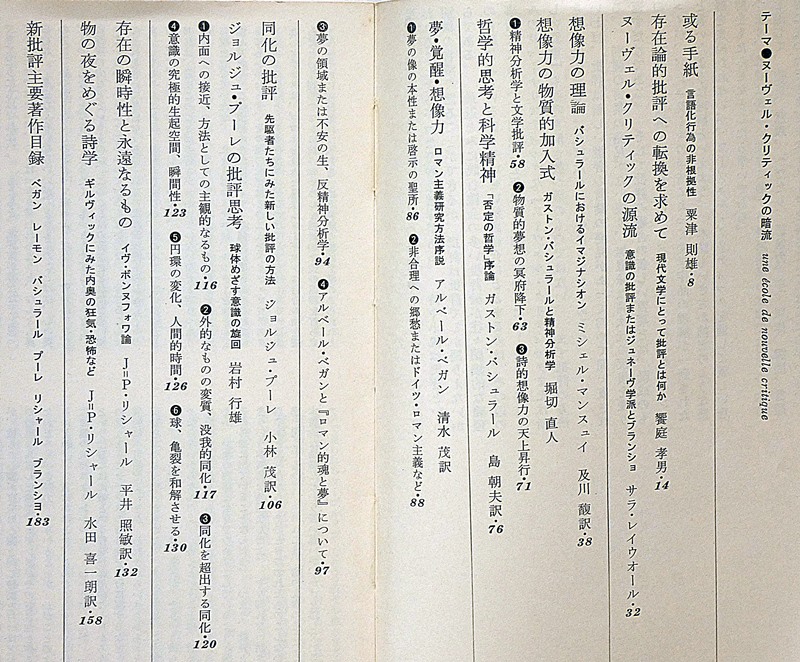 テーマ●ヌーヴェル・クリティックの暗流 une école de nouvelle critique
或る手紙 言語化行為の非根拠性 粟津 則雄・8
存在論的批評への転換を求めて 現代文学にとって批評とは何か 饗庭 孝男・14
ヌーヴェル・クリティックの源流 意識の批評またはジュネーヴ学派とブランショ サラ・レイウォール・32
想像力の理論 バシュラールにおけるイマジナシオン ミシェル・マンスュイ 及川 馥訳・38
想像力の物質的加入式 ガストン・バシュラールと精神分析学 堀切 直人
❶精神分析学と文学批評・58 ❷物質的夢想の冥府降下・63 ❸詩的想像力の天上昇行・71
哲学的思考と科学精神 「否定の哲学」序論 ガストン・バシュラール 島 朝夫訳・76
夢・覚醒・想像力 ロマン主義研究方法序説 アルベール・ベガン 清水 茂訳
❶夢の像の本性または啓示の聖所・86 ❷非合理への郷愁またはドイツ・ロマン主義など・88
❸夢の領域または不安の生、反精神分析学・94 ❹アルベール・ベガンと『ロマン的魂と夢』について・97
同化の批評 先駆者たちにみた新しい批評の方法 ジョルジュ・プーレ 小林 茂訳・106
ジョルジュ・プーレの批評思考 球体めざす意識の旋回 岩村 行雄
❶内面への接近、方法としての主観的なるもの・116 ❷外的なものの変質、没我的同化・117 ❸同化を超出する同化・120
❹意識の究極的生起空間、瞬間性・123 ❺円環の変化、人間的時間・126 ❻球、亀裂を和解させる・130
存在の瞬時性と永遠なるもの イヴ・ボンヌフォワ論 J=P・リシャール 平井 照敏訳・132
物の夜をめぐる詩学 ギルヴィックにみた内奥の狂気・恐怖など J=P・リシャール 水田 喜一朗訳・158
新批評主要著作目録 ベガン レーモン バシュラール プーレ リシャール ブランショ・183